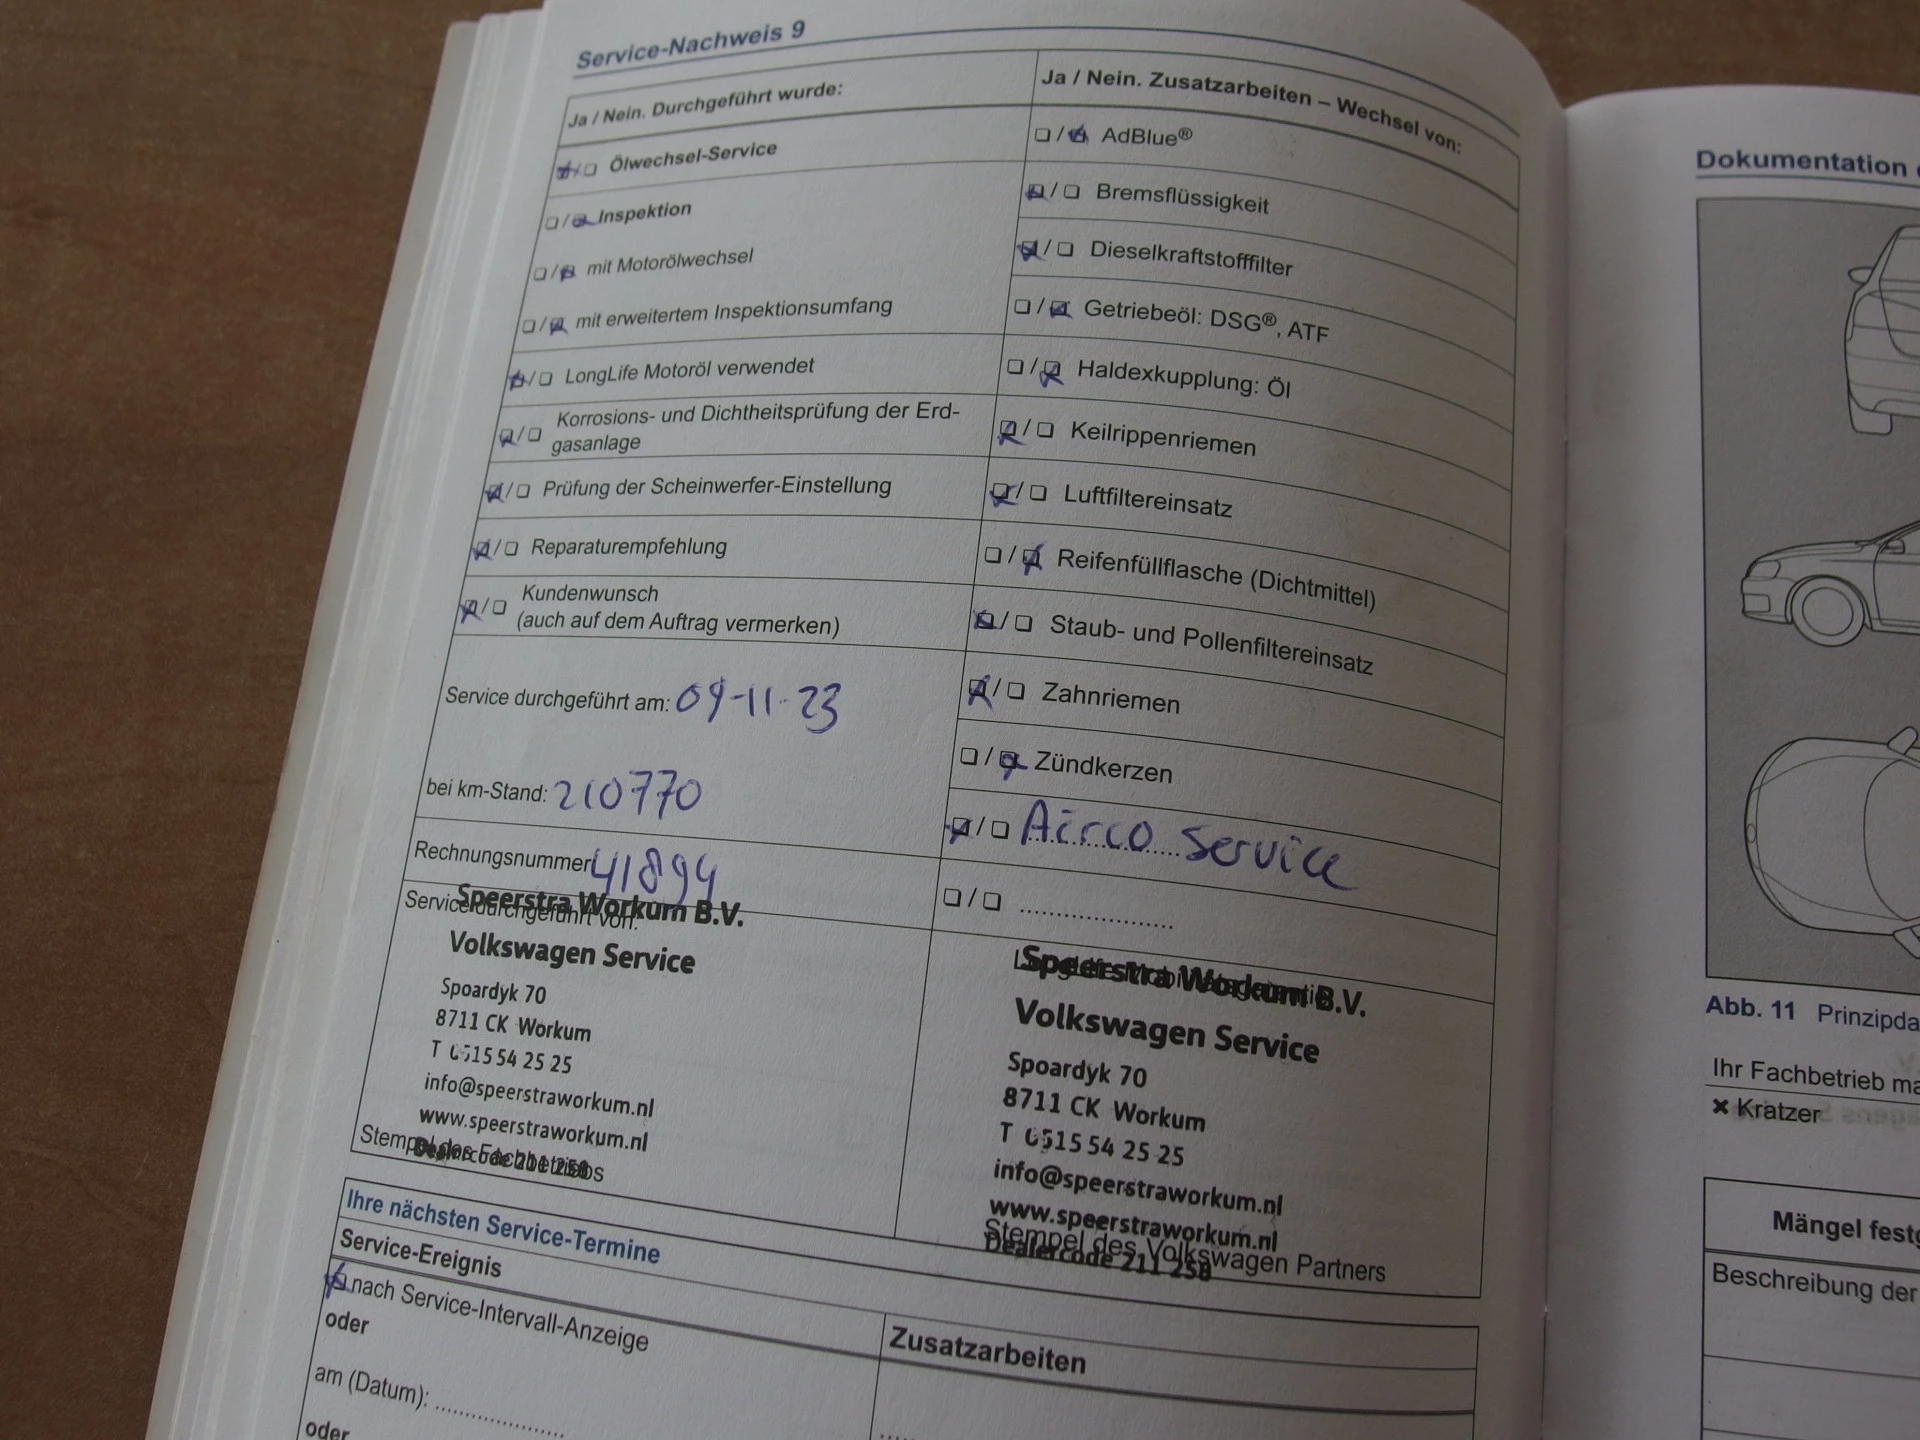 Service-Nachweis 9
Ja / Nein. Durchgeführt wurde:
Ölwechsel-Service
Inspektion
mit Motorölwechsel
mit erweitertem Inspektionsumfang
LongLife Motoröl verwendet
Korrosions- und Dichtheitsprüfung der Erd-
gasanlage
Prüfung der Scheinwerfer-Einstellung
Reparaturempfehlung
Kundenwunsch
(auch auf dem Auftrag vermerken)
Service durchgeführt am: 09-11-23
bei km-Stand: 210770
Rechnungsnummer 41894
Service durchgeführt von:
Speerstra Workum B.V.
Volkswagen Service
Spoardyk 70
8711 CK Workum
T 0515 54 25 25
info@speerstraworkum.nl
www.speerstraworkum.nl
Dealercode 211 258
Stempel des Fachbetriebs
Ja / Nein. Zusatzarbeiten – Wechsel von:
AdBlue®
Bremsflüssigkeit
Dieselkraftstofffilter
Getriebeöl: DSG®, ATF
Haldexkupplung: Öl
Keilrippenriemen
Luftfiltereinsatz
Reifenfüllflasche (Dichtmittel)
Staub- und Pollenfiltereinsatz
Zahnriemen
Zündkerzen
Airco service
Speerstra Workum B.V.
Volkswagen Service
Spoardyk 70
8711 CK Workum
T 0515 54 25 25
info@speerstraworkum.nl
www.speerstraworkum.nl
Dealercode 211 258
Stempel des Volkswagen Partners
Ihre nächsten Service-Termine
Service-Ereignis
nach Service-Intervall-Anzeige
oder
am (Datum):
oder
Zusatzarbeiten
Dokumentation
Abb. 11
Ihr Fachbetrieb
Kratzer
Mängel
Beschreibung der